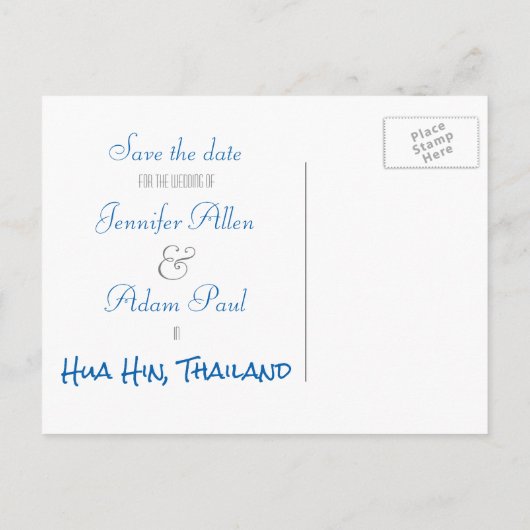 Save the date
FOR THE WEDDING OF
Jennifer Allen
&
Adam Paul
IN
HUA HIN, THAILAND
Place
Stamp
Here